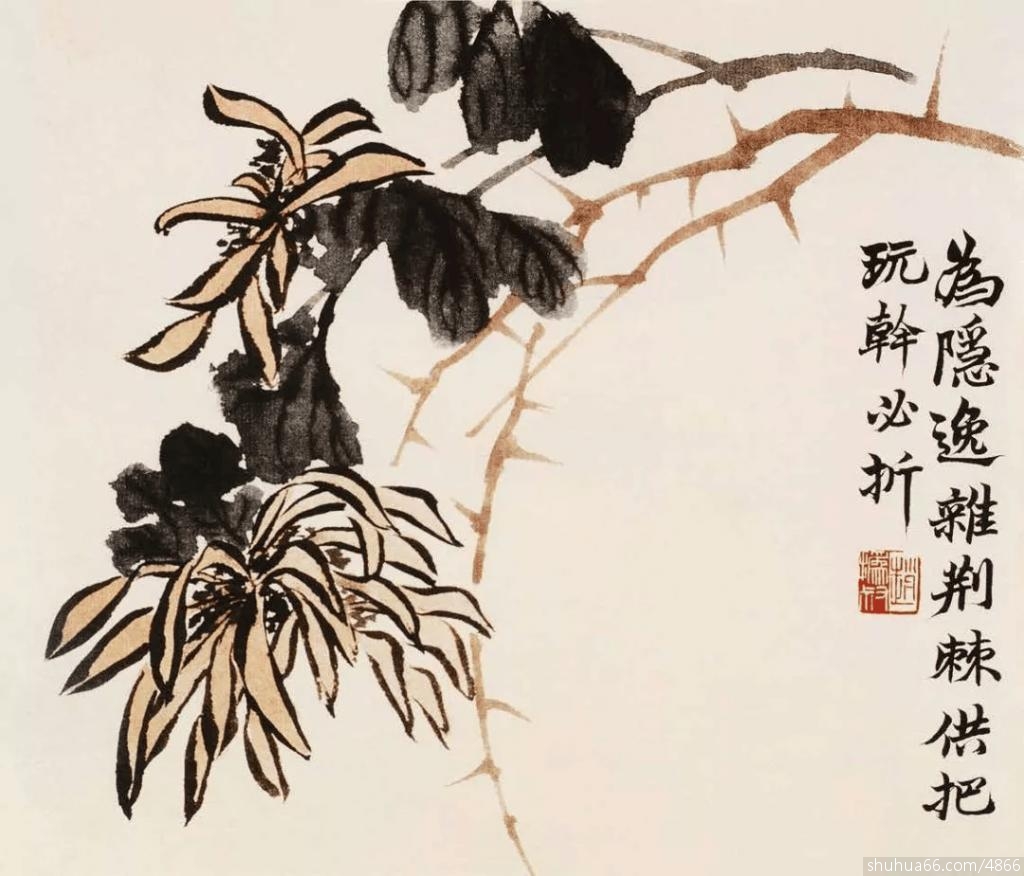 為隱逸雜荆棘供把
玩幹必折
趙
撝叔
shuhua66.com/4866